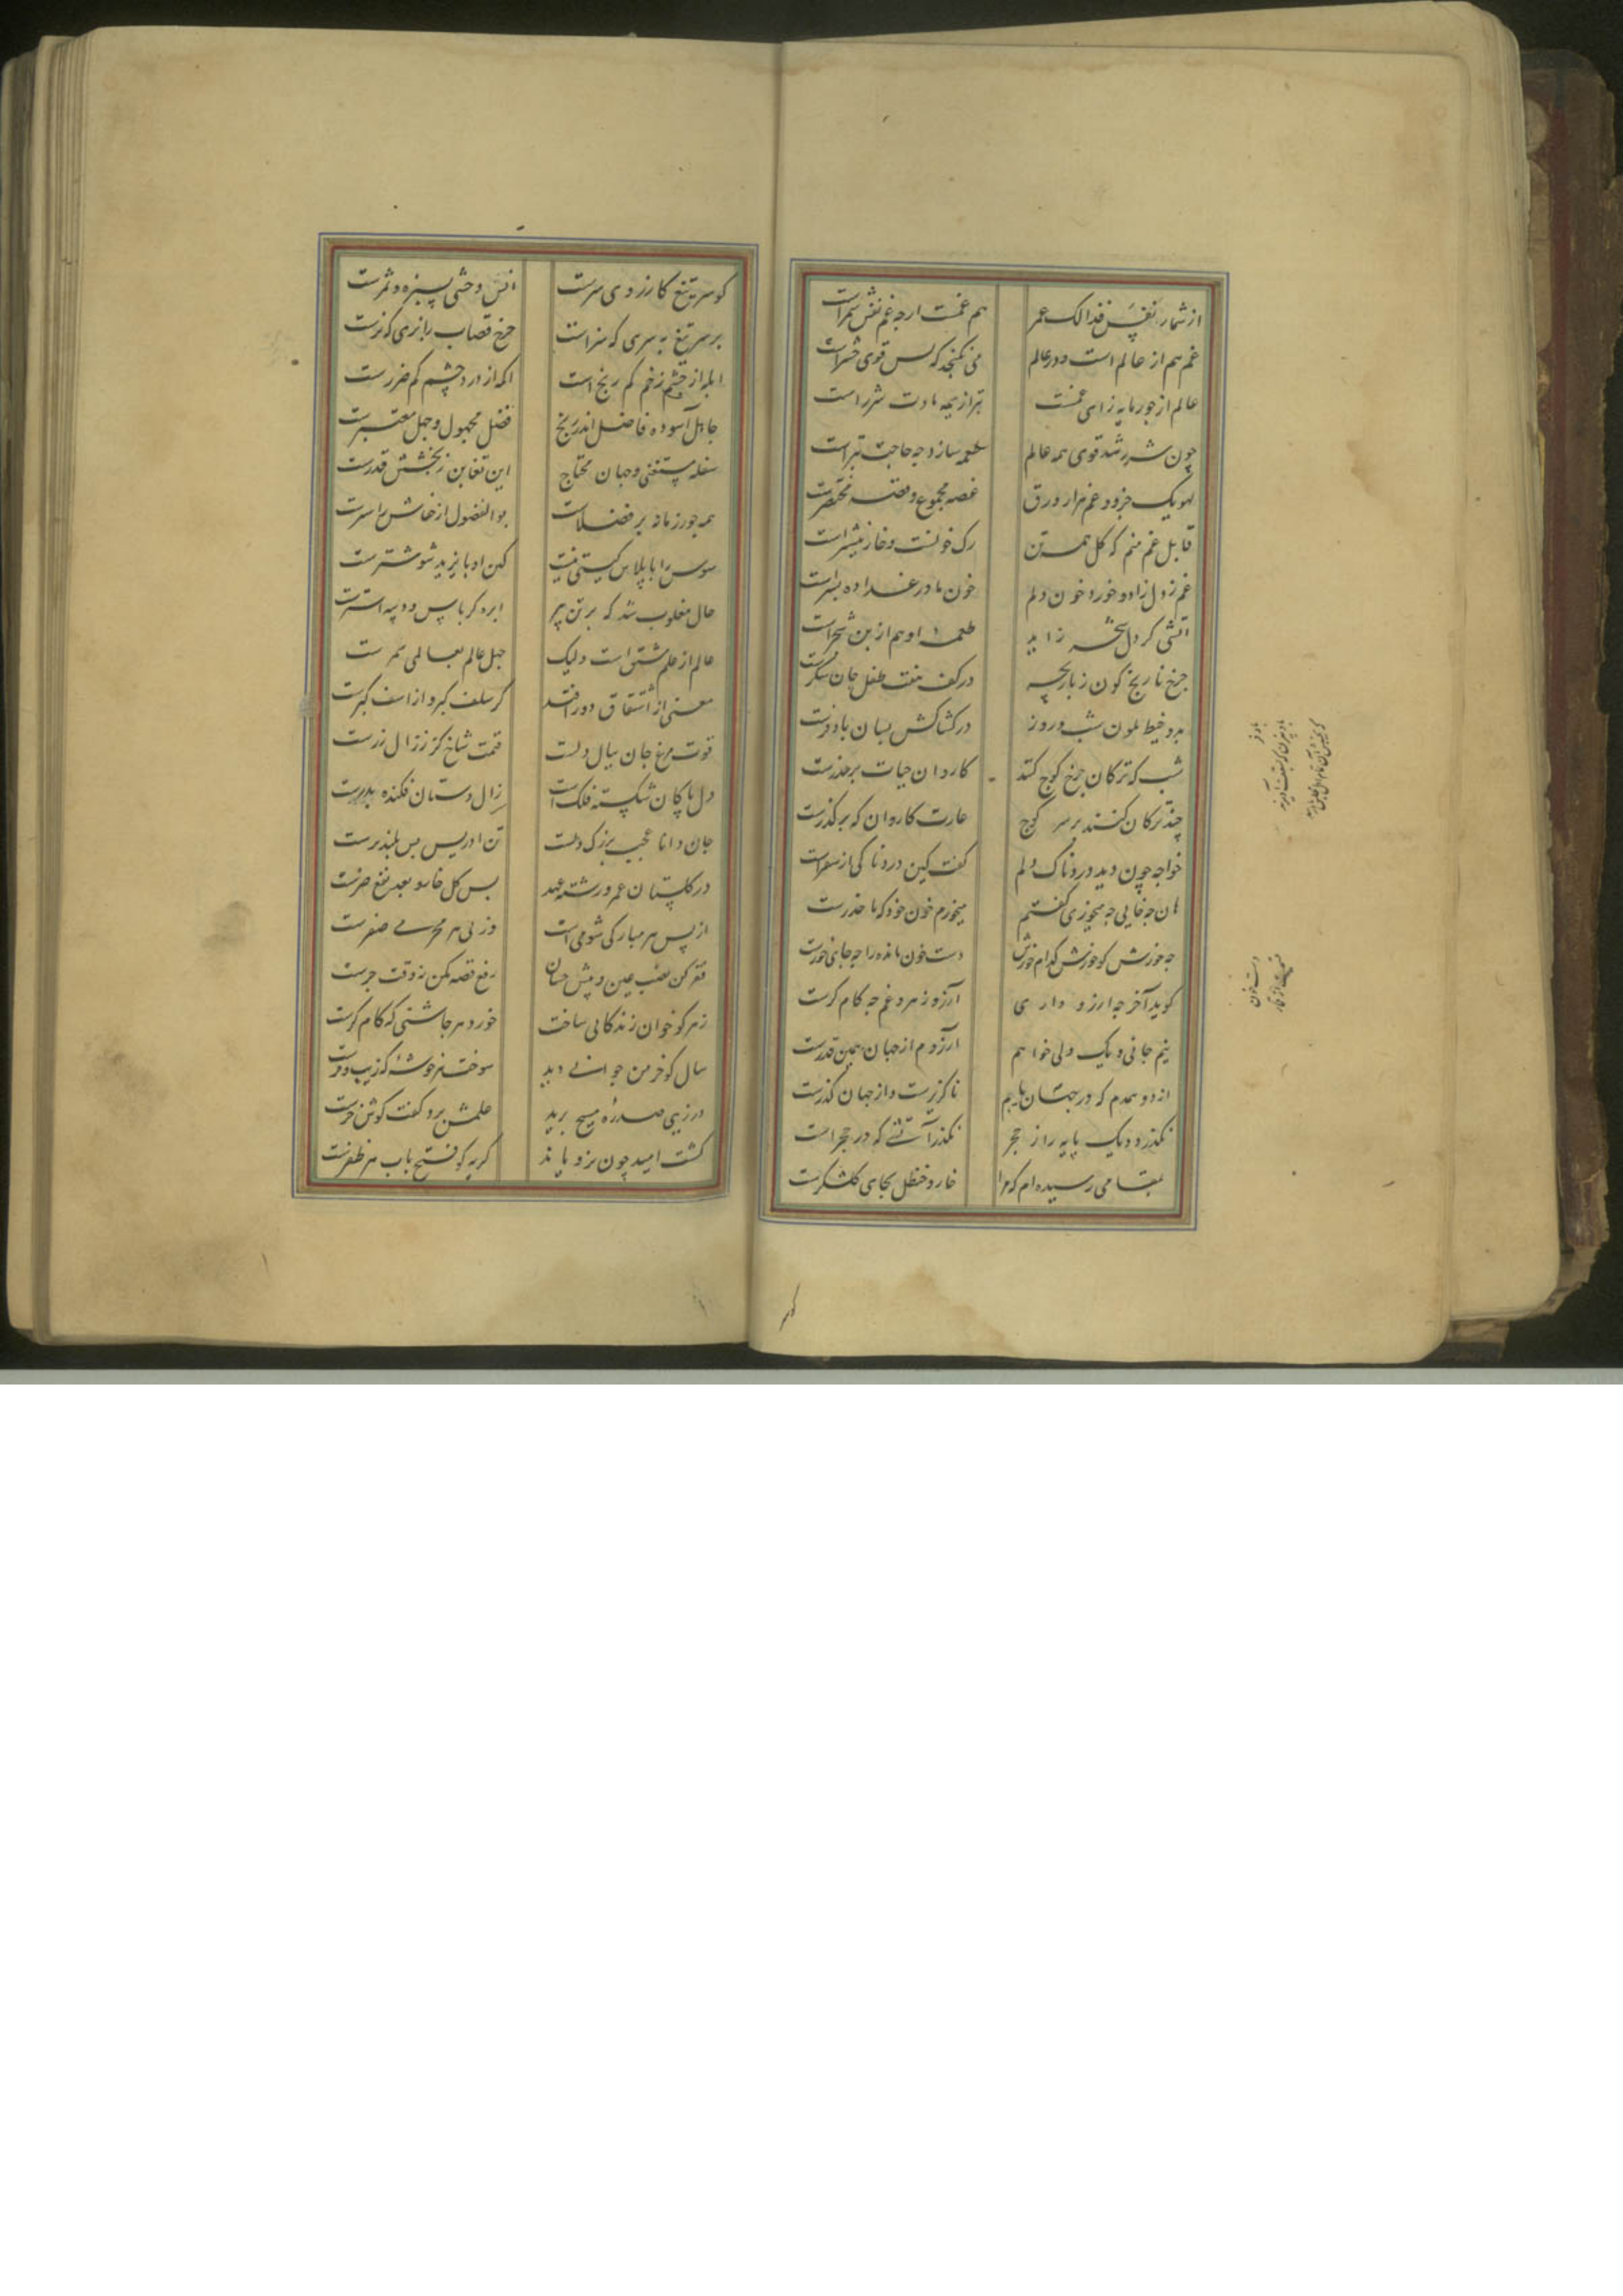 از شمار نفس فذالک عمر هم غمست ارچه غم نفس شمراست
غم هم از عالم است و در عالم می نکنجد که بس قوی حشراست
عالم از جور مایه زای غمست بتر از هیمه مادت شرراست
چون شرر شد قوی همه عالم طعمه سازد چه حاجت تبراست
لهو یک جزو و غم هزار ورق غصه مجموع و قصه مختصرست
قابل غم منم که کل همه تن رک خونست و خار نیشتراست
غم ز دل زاد و خورد خون دلم خون مادر غذا ده بسراست
آتشی کز دل شجر زاید طعمه او هم از بن شجراست
چرخ نارنج کون ز بازیچه در کف هفت طفل جان شکرست
بدو خیط ملون شب و روز در کشاکش بسان بادفرست
شب که ترکان چرخ کوچ کنند کاروان حیات بر حذرست
چند ترکان کنند بر سر کوچ غارت کاروان که بر کذرست
خواجه چون دید دردناک دلم کفت کین دردناکی از سفراست
هان چه خایی چه میخوری کفتم میخورم خون خود که ما حذرست
چه خورش کو خورش کدام خورش دست خون مانده را چه جای خورست
کوید آخر چه ارزو داری آرزو زهر و غم چه کام کرست
نیم جانی و یک دلی خواهم آرزوم از جهان همین قدرست
از دو همدم که در جهان یابم ناکزیرست و از جهان کذرست
نکذرد دیک پایه را ز حجر نکذر آتشی که در حجر است
بمقامی رسیده ام که مرا خار و حنظل بجای کلشکرست
کو سر تیغ کارزوی سرست انس وحشی بسبزه و ثمرست
بر سر تیغ به سری که سزاست چرخ قصاب را بزی که نرست
ابله از چشم زخم کم رنج است اکمه از درد چشم کم ضررست
جاهل آسوده فاضل اندر رنج فضل مجهول و جهل معتبرست
سفله مستغنی و جهان محتاج این تغابن ز بخشش قدرست
همه جور زمانه بر فضلاست بو الفضول از جفاش بر اسرست
سوس را با پلاس کینی نیست کین او با بزید ششترست
حال مغلوب شد که بر تن پیر ابره کرباس و دیبه استرست
عالم از علم مشتق است ولیک جهل عالم بعالمی سمرست
معنی از اشتقاق دور افتد کز سلف کبر و از اسف کبرست
قوت مرغ جان ببال دلست قیمت شاخ کز ز زال زرست
دل پاکان شکسته فلک است زال دستان فکنده پدرست
جان دانا عجب بزرک دلست تن ادریس بس بلند پرست
در کلستان عمر و رشته عهد پس کل خار و بعد نفع ضرست
از پس هر مبارکی شومی است وز پی هر محرمی صفرست
فقر کن نصب عین و پیش خسان رفع قصه مکن نه وقت جرست
زهر کو خوان زندکانی ساخت خورد هر چاشنی که کام کرست
سال کو خرمن جوانی دید سوخت هر خوشه که زیب و فرست
درزیی صدره مسیح برید علمش برد و کفت کوش خرست
کشت امید چون نرویاند کریه کو فتح باب هر نظرست
دست خون